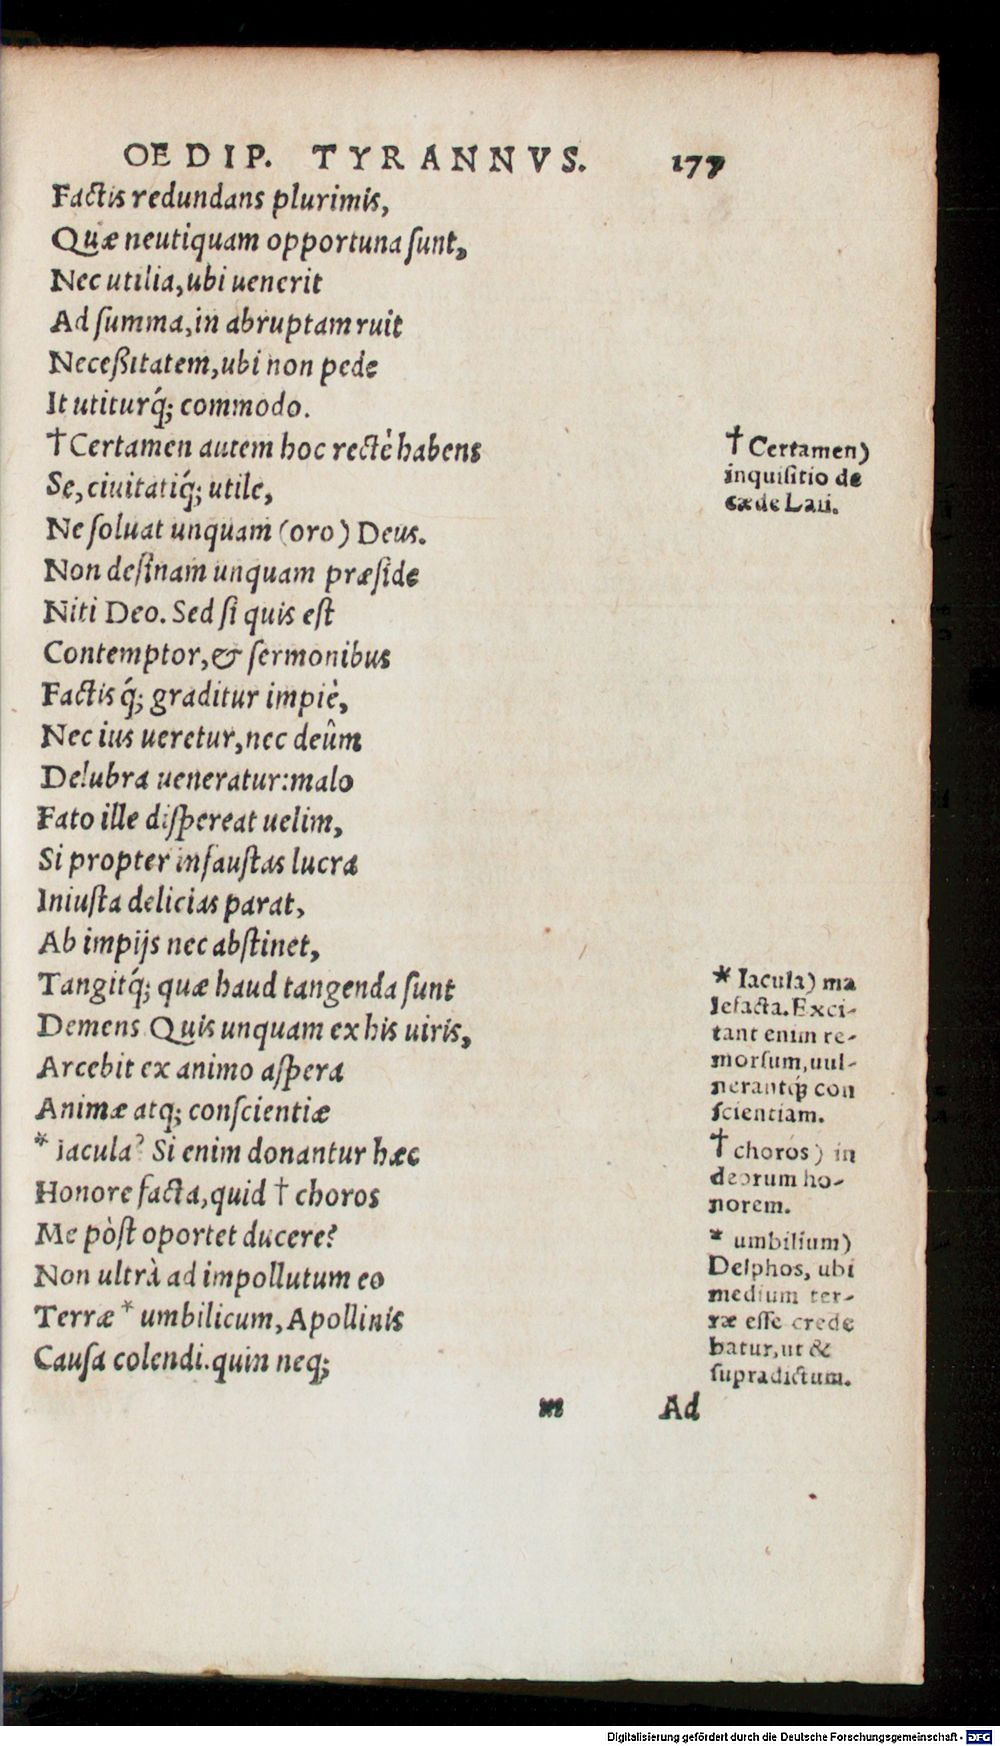 OEDIP. TYRANNVS. 177
Factis redundans plurimis,
Quæ neutiquam opportuna ſunt,
Nec utilia, ubi uenerit
Ad ſumma, in abruptam ruit
Neceßitatem, ubi non pede
It utiturq́; commodo.
†Certamen autem hoc rectè habens
Se, ciuitatiq́; utile,
Ne ſoluat unquam (oro) Deus.
Non deſinam unquam præſide
Niti Deo. Sed ſi quis eſt
Contemptor, & ſermonibus
Factis q́; graditur impiè,
Nec ius ueretur, nec deûm
Delubra ueneratur: malo
Fato ille diſpereat uelim,
Si propter infauſtas lucra
Iniuſta delicias parat,
Ab impijs nec abſtinet,
Tangitq́; quæ haud tangenda ſunt
Demens Quis unquam ex his uiris,
Arcebit ex animo aſpera
Animæ atq; conſcientiæ
* iacula? Si enim donantur hæc
Honore facta, quid † choros
Me pòſt oportet ducere?
Non ultrà ad impollutum eo
Terræ * umbilicum, Apollinis
Cauſa colendi. quin neq;
† Certamen)
inquiſitio de
cæde Laii.
* Iacula) ma
lefacta. Exci-
tant enim re-
morſum, uul-
nerantq́; con
ſcientiam.
† choros) in
deorum ho-
norem.
* umbilium)
Delphos, ubi
medium ter-
ræ eſſe crede
batur, ut &
ſupradictum.
m Ad
Digitalisierung gefördert durch die Deutsche Forschungsgemeinschaft - DFG